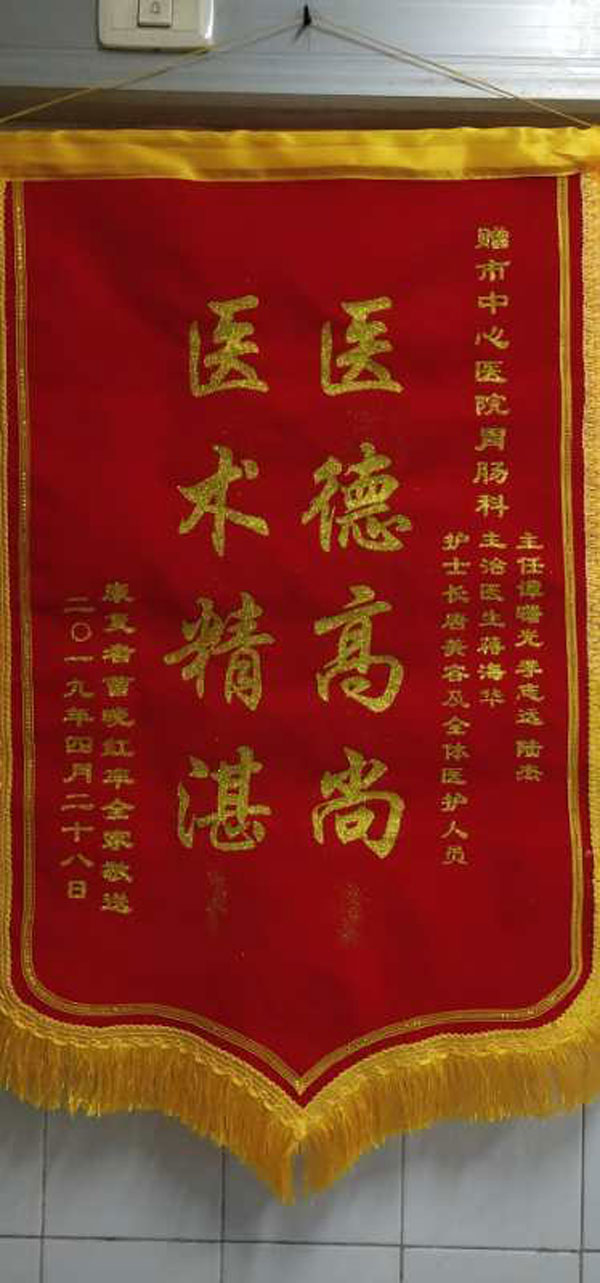 赠市中心医院胃肠科
主任谭曙光 李志远 陆杰
主治医生蒋海华
护士长唐美容及全体医护人员
医德高尚
医术精湛
康复者曹晚红率全家敬送
二〇一九年四月二十八日